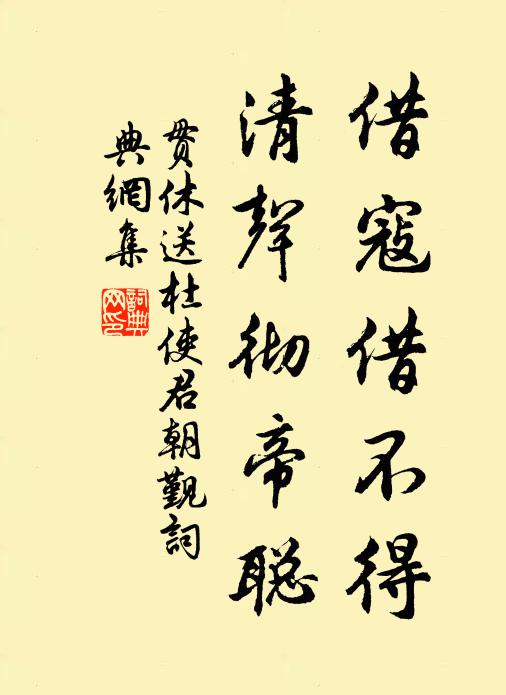 借寇借不得
清聲彻帝聪
贯休送杜使君朝觐詞
典網集
詞典
网印